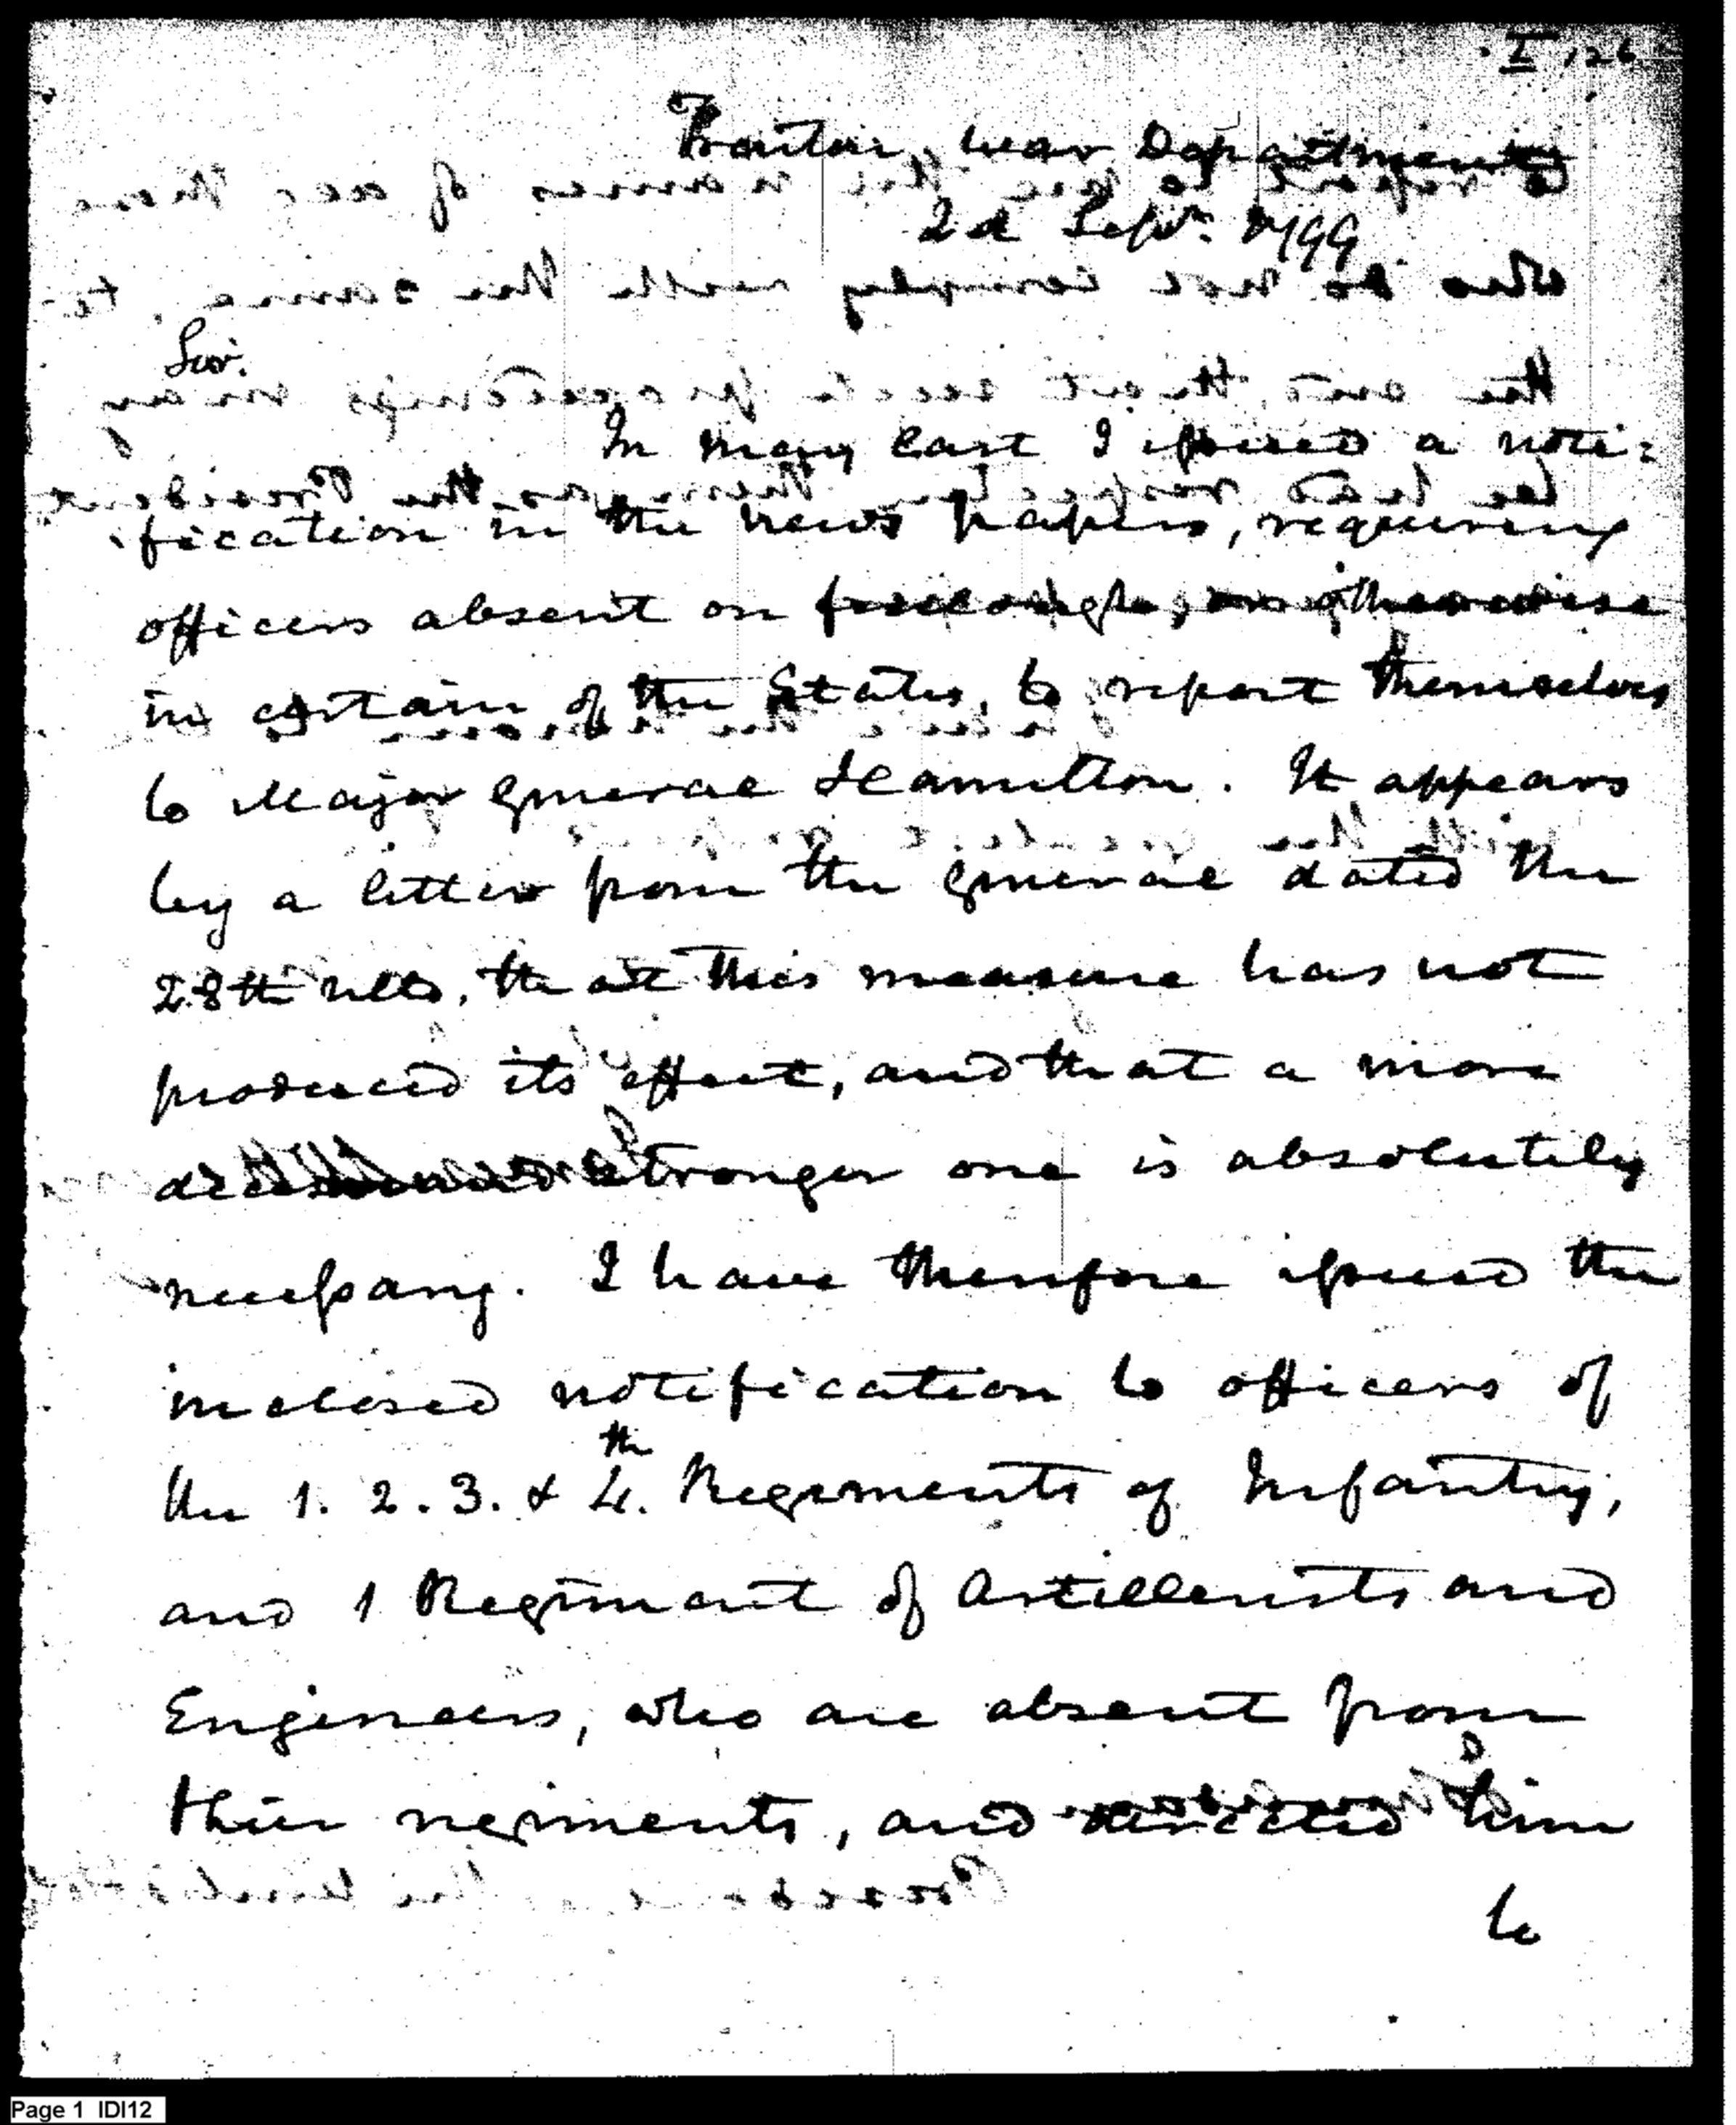 I, 126
Trenton, War Department
2d Sept. 1799
Sir.
In May last I issued a noti=
fication in the news papers, requiring
officers absent on furlough, or otherwise
in certain of the States, to report themselves
to Major General Hamilton. It appears
by a letter from the General dated the
28th ulto, that this measure has not
produced its effect, and that a more
stronger one is absolutely
necessary. I have therefore issued the
inclosed notification to officers of
the 1. 2. 3. & 4.th Regiments of Infantry,
and 1 Regiment of Artillerists and
Engineers, who are absent from
their regiments, and directed him
to
Page 1 IDI12